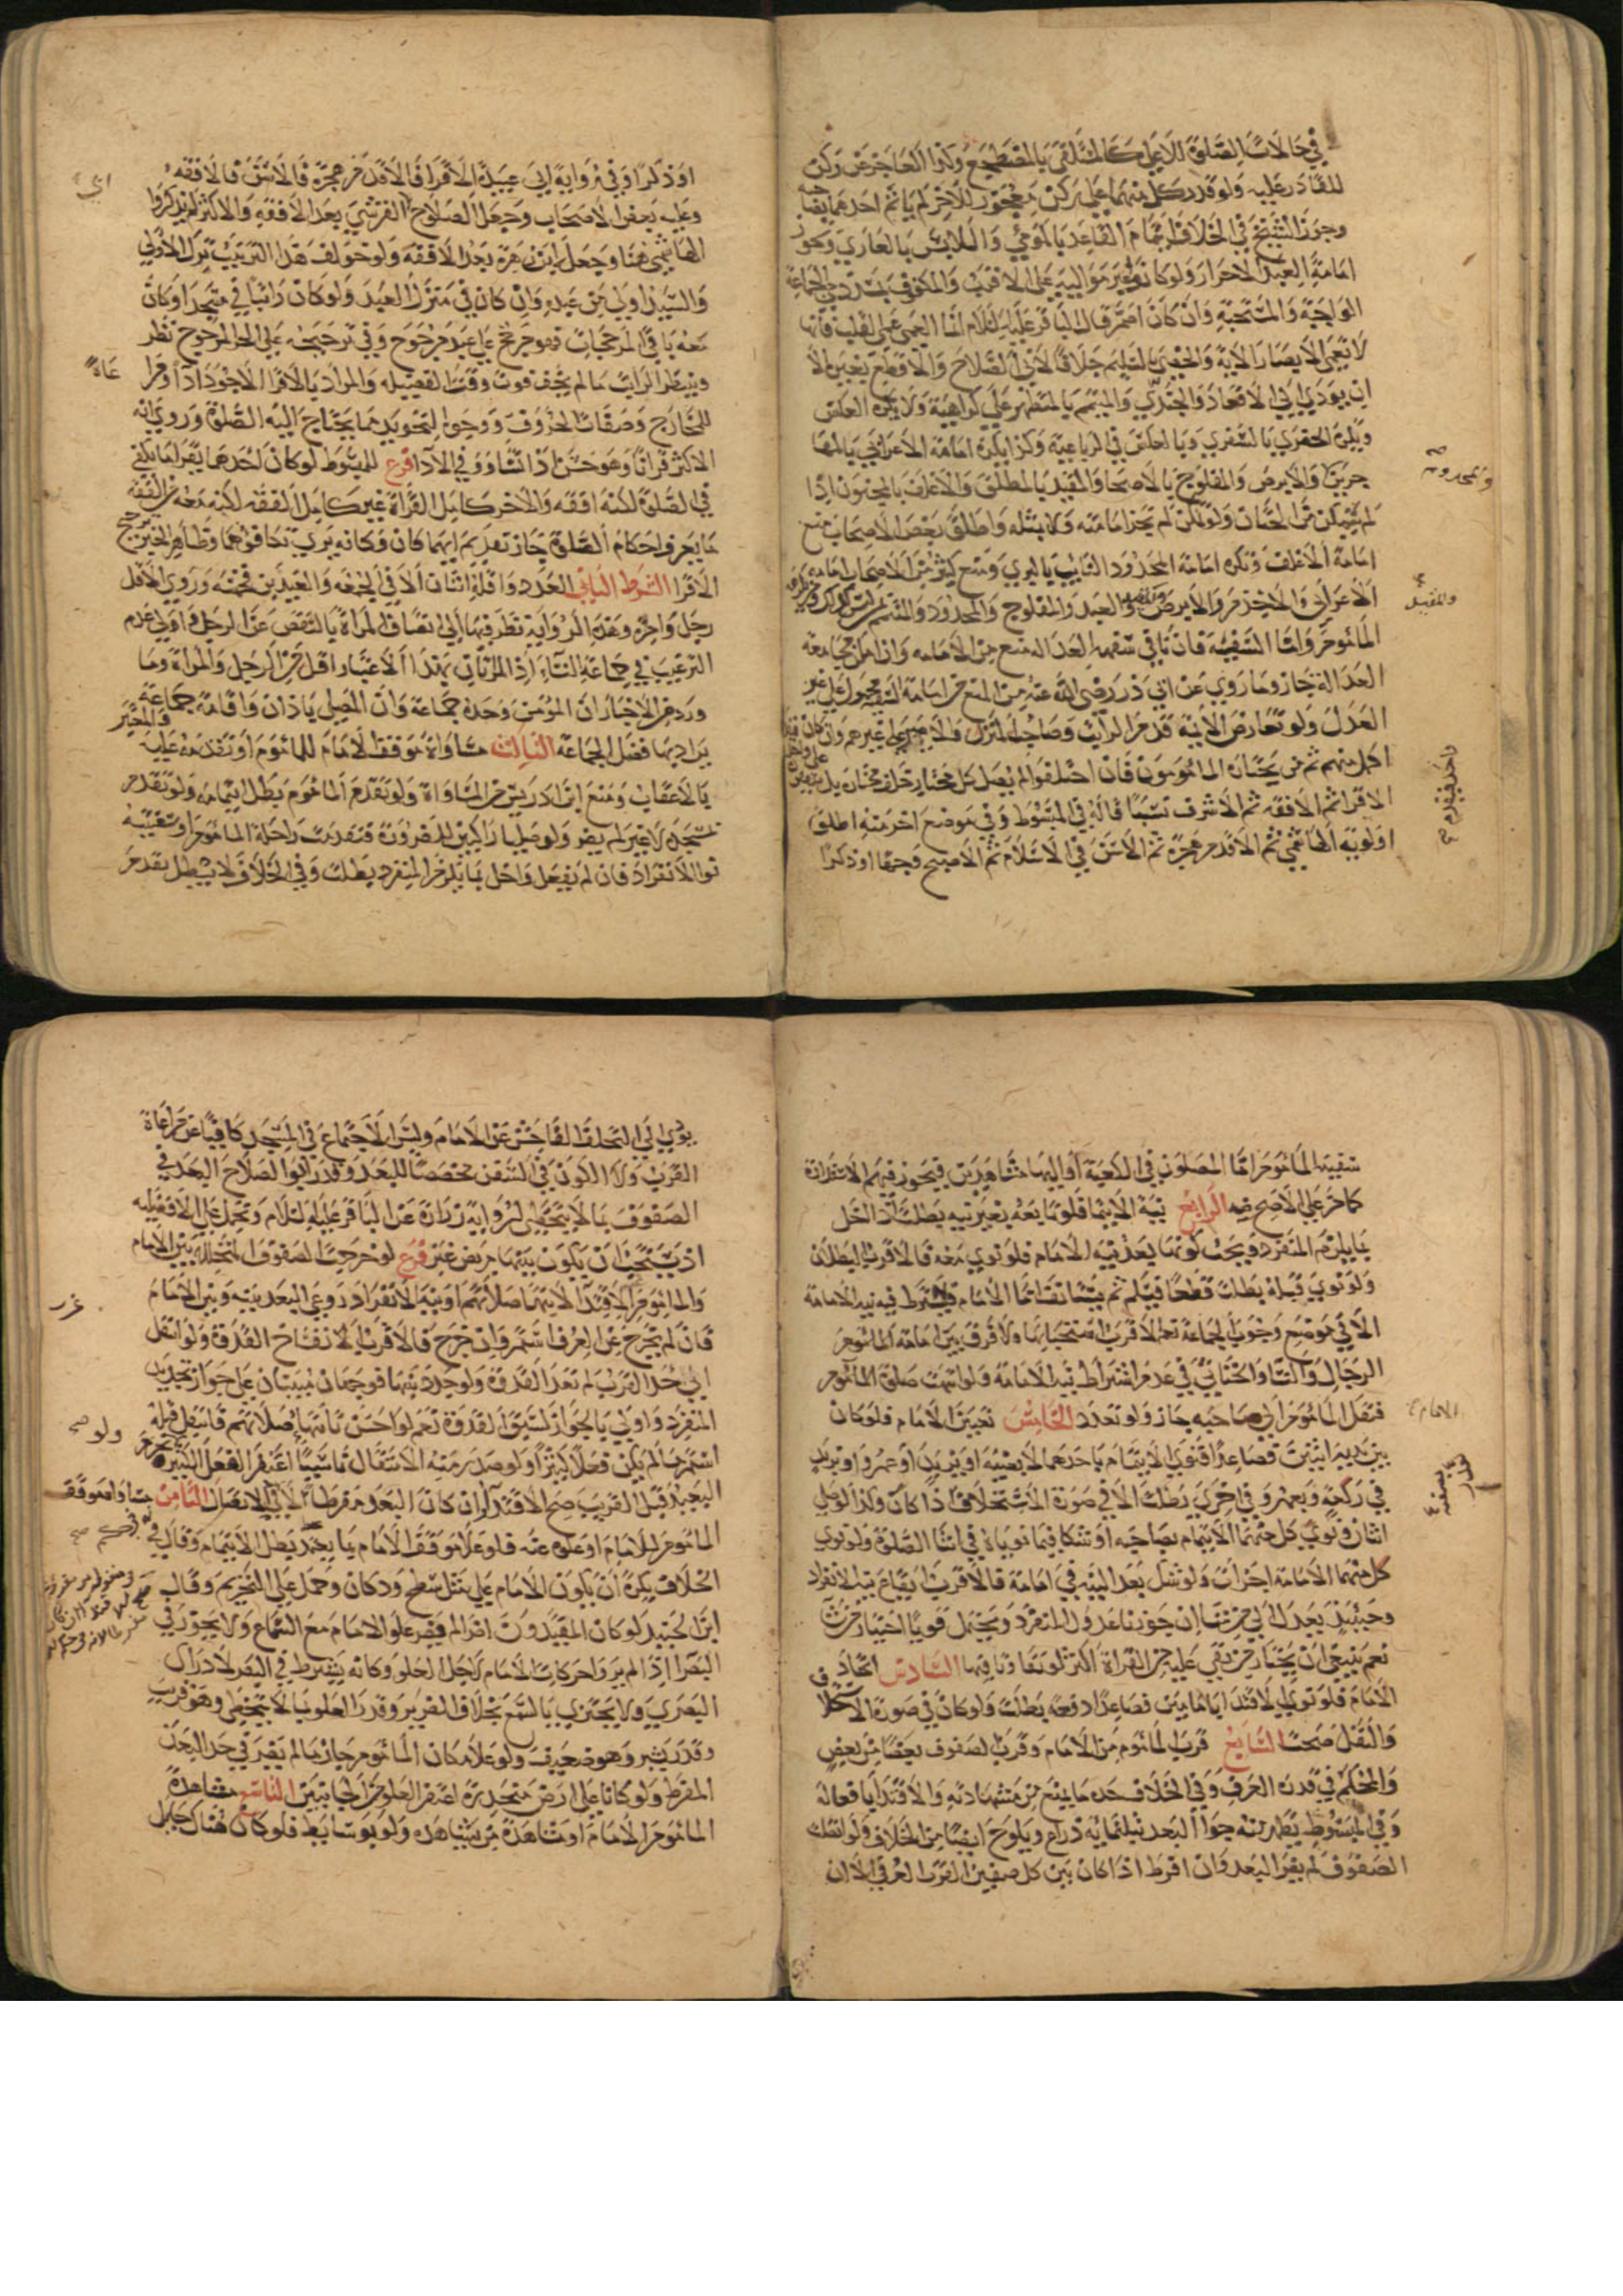 في حالات الصلوة للاعلى كالمستلقي بالمضطجع وكذا العاجز عن ركن
للقادر عليه ولو قدر كل منهما على ركن معجوز للاخر لم ياتم احدهما بصاحبه
وجوز الشيخ في الخلاف ائتمام القاعد بالمومئ واللابس بالعاري وجوز
امامة العبد الاحرار ولو كانوا غير مواليه على الاقرب والمكفوف في الجماعة
الواجبة والمستحبة وان كان اصم قال الباقر عليه السلام انما العمى عمى القلب فانها
لا تعمى الابصار الاية والخصي بالسليم خلافا لابي الصلاح والاقطع بغيره الا
ان يؤدي الى الاقعاد والجندي والمتيمم بالمتطهر على كراهية ولا يكره العكس
ويكره الحضري بالسفري وبالعكس في الرباعية وكذا يكره امامة الاعرابي بالمها
جرين والابرص والمفلوج بالاصحاء والمقيد بالمطلق والاغلف بالمختون اذا
لم يتمكن من الختان ولو تمكن لم تجز امامته ولا بمثله واطلق بعض الاصحاب منع
امامة الاغلف وتكره امامة المحدود التائب بالبري ومنع كثير من الاصحاب امامة
الاعرابي والاجذم والابرص والعبد والمفلوج والمحدود والمتيمم
الماموم واما السفيه فان نافى سفهه العدالة منع من الامامة وان امكن مجامعة
العدالة جاز وما روي عن ابي ذر رضي الله عنه من المنع من امامة السفيه محمول على غير
العدل ولو تعارض الائمة قدم الراتب وصاحب المنزل والامير على غيرهم وان كان فيه
اكمل منهم ثم من يختاره المامومون فان اختلفوا لم يصل كل مختار خلف مختاره بل
الاقرا ثم الافقه ثم الاشرف نسبا قاله في المبسوط وفي موضع اخر منه اطلق
اولوية الهاشمي ثم الاقدم هجرة ثم الاسن في الاسلام ثم الاصبح وجها او ذكرا
والمجذوم صح
والمقيد
او ذكرا وفي رواية ابي عبيدة الاقرا فالاقدم هجرة فالاسن فالافقه
وعليه بعض الاصحاب وجعل ابو الصلاح القرشي بعد الافقه والاكثر لم يذكروا
الهاشمي هنا وجعله ابن زهرة بعد الافقه ولو خولف هذا الترتيب ترك الاولى
والسيد اولى من عبده وان كان في منزل العبد ولو كان راتبا في مسجد او كان
معه باقي المرجحات فهو مرجح على عبد مرجوح وفي ترجيحه على الحر المرجوح نظر
وينتظر الراتب ما لم يخف فوت وقت الفضيلة والمراد بالاقرا الاجود اداء
للمخارج وصفات الحروف ووجوه التجويد مما يحتاج اليه الصلوة وروي انه
الاكثر قرانا وهو حسن اذا تساووا في الاداء فرع المبسوط لو كان احدهما يقرا ما يكفي
في الصلوة لكنه افقه والاخر كامل القراة غير كامل الفقه لكنه معه من الفقه
ما يعرف احكام الصلوة جاز تقديم ايهما كان وكانه يرى تكافؤهما وظاهر الخبرين ترجيح
الاقرا الشرط الثاني العدد واقله اثنان الا في الجمعة والعيدين فخمسة وروي اقل
رجل وامرة وهذه الرواية نظر فيها الى نقصان المراة بالنقص عن الرجل او الى عدم
الترغيب في جماعة النساء اذ المرتان بهذا الاعتبار اقل من الرجل والمراة وما
ورد من الاخبار ان المؤمن وحده جماعة وان المصلي باذان واقامة جماعة
يراد بها فضل الجماعة الثالث مساواة موقف الامام للماموم او تقدمه عليه
بالاعقاب ومنع ابن ادريس من المساواة ولو تقدم الماموم بطل ائتمامه ولو تقدم
بمسجده لا غير لم يضر ولو صليا راكبين للضرورة فتقدمت راحلة الماموم او سفينته
نوى الانفراد فان لم يفعل واخل بما يلزم المنفرد بطلت وفي الخلاف لا يبطل بتقدم
سفينة الماموم اما المصلون في الكعبة او اليها مشاهدين فيجوز فيهم الاستدارة
كما مر على الاصح فيه الرابع نية الائتمام فلو تابعه بغير نية بطلت اذا اخل
بما يلزم المنفرد ويجب كونها بعد نية الامام فلو نوى معه فالاقرب البطلان
ولو نوى قبله بطلت قطعا فيسلم ثم يستانف اما الامام فلا يشترط فيه نية الامامة
الا في موضع وجوب الجماعة نعم الاقرب استحبابها ولا فرق بين امامة الماموم
الرجال والنساء والخناثى في عدم اشتراط نية الامامة ولو انتهت صلوة الماموم
فنقل الماموم الى صاحبه جاز ولو تعدد الخامس تعيين الامام فلو كان
بين يديه اثنين فصاعدا فنوى الائتمام باحدهما لا بعينه او بزيد او عمرو او بزيد
في ركعة وبعمرو في اخرى بطلت الا في صورة الاستخلاف اذا كان وكذا لو صلى
اثنان ونوى كل منهما الائتمام بصاحبه او شكا فيما نوياه في اثناء الصلوة ولو نوى
كل منهما الامامة اجزات ولو شك بعد النية في امامة فالاقرب ايقاع نية الانفراد
وحينئذ يعدل الى من شاء ان جوزنا عدول المنفرد ويحتمل قويا اختيار من شاء
نعم ينبغي ان يختار من بقي عليه من القراة اكثر لو تفاوتا فيها السادس اتحاد
الامام فلو نوى الاقتداء بامامين فصاعدا دفعة بطلت ولو كان في صورة الاستخلاف
والنقل صحت السابع قرب الماموم من الامام وقرب الصفوف بعضها من بعض
والمحكم في قدره العرف وفي الخلاف حده ما يمنع من مشاهدته والاقتداء بافعاله
وفي المبسوط يظهر منه جواز البعد بثلثماية ذراع ويلوح ايضا من الخلاف ولو اتصلت
الصفوف لم يضر البعد وان افرط اذا كان بين كل صفين القرب العرفي الا ان
يؤدي الى التخلف الفاحش عن الامام وليس الاجتماع في المسجد كافيا عن مراعاة
القرب ولا الكون في السفن مخصصا للبعد وقدر ابو الصلاح البعد في
الصفوف بما لا يتخطى لرواية زرارة عن الباقر عليه السلام وتحمل على الافضلية
اذ يستحب ان يكون بينهما مربض عنز فرع لو خرجت الصفوف المتخللة بين الامام
والماموم عن الاقتداء لانتهاء صلاتهم او نية الانفراد روعي البعد بينه وبين الامام
فان لم يخرج عن العرف استمر وان خرج فالاقرب انفساخ القدوة ولو انتقل
الى حد القرب لم تعد القدوة ولو جدد نيتها فوجهان مبنيان على جواز تجديد
المنفرد واولى بالجواز لسبق القدوة نعم لو احس بانتهاء صلاتهم فانتقل قبله
استمر ما لم يكن فعلا كثيرا ولو صدر منه الانتقال ناسيا اغتفر الفعل الكثير
البعيد قبل القريب صح الاقتداء وان كان البعد مفرطا الثامن تساوي موقف
الماموم للامام او علوه عنه فلو علا موقف الامام بما يعتد بطل الائتمام وقال في
الخلاف يكره ان يكون الامام على مثل سطح ودكان وحمل على التحريم وقال
ابن الجنيد لو كان المقتدون اضراء لم يضر علو الامام مع السماع ولا يجوز في
البصراء اذا لم يروا حركات الامام لاجل العلو وكانه يشترط في البصر لادراك
البصري ولا يجتزي بالسمع بخلاف الضرير وقدر العلو بما لا يتخطى وهو قريب
وقدر بشبر وهو ضعيف ولو علا مكان الماموم جاز ما لم يصر في حد البعد
المفرط ولو كانا على ارض منحدرة اغتفر العلو من الجانبين التاسع مشاهدة
الماموم الامام او مشاهدة من يشاهده ولو بوسائط فلو كان هناك حائل
ولو صح